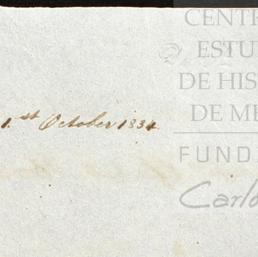 CENT
ESTU
DE HIS
DE ME
1.st October 1834
FUND
Carlo